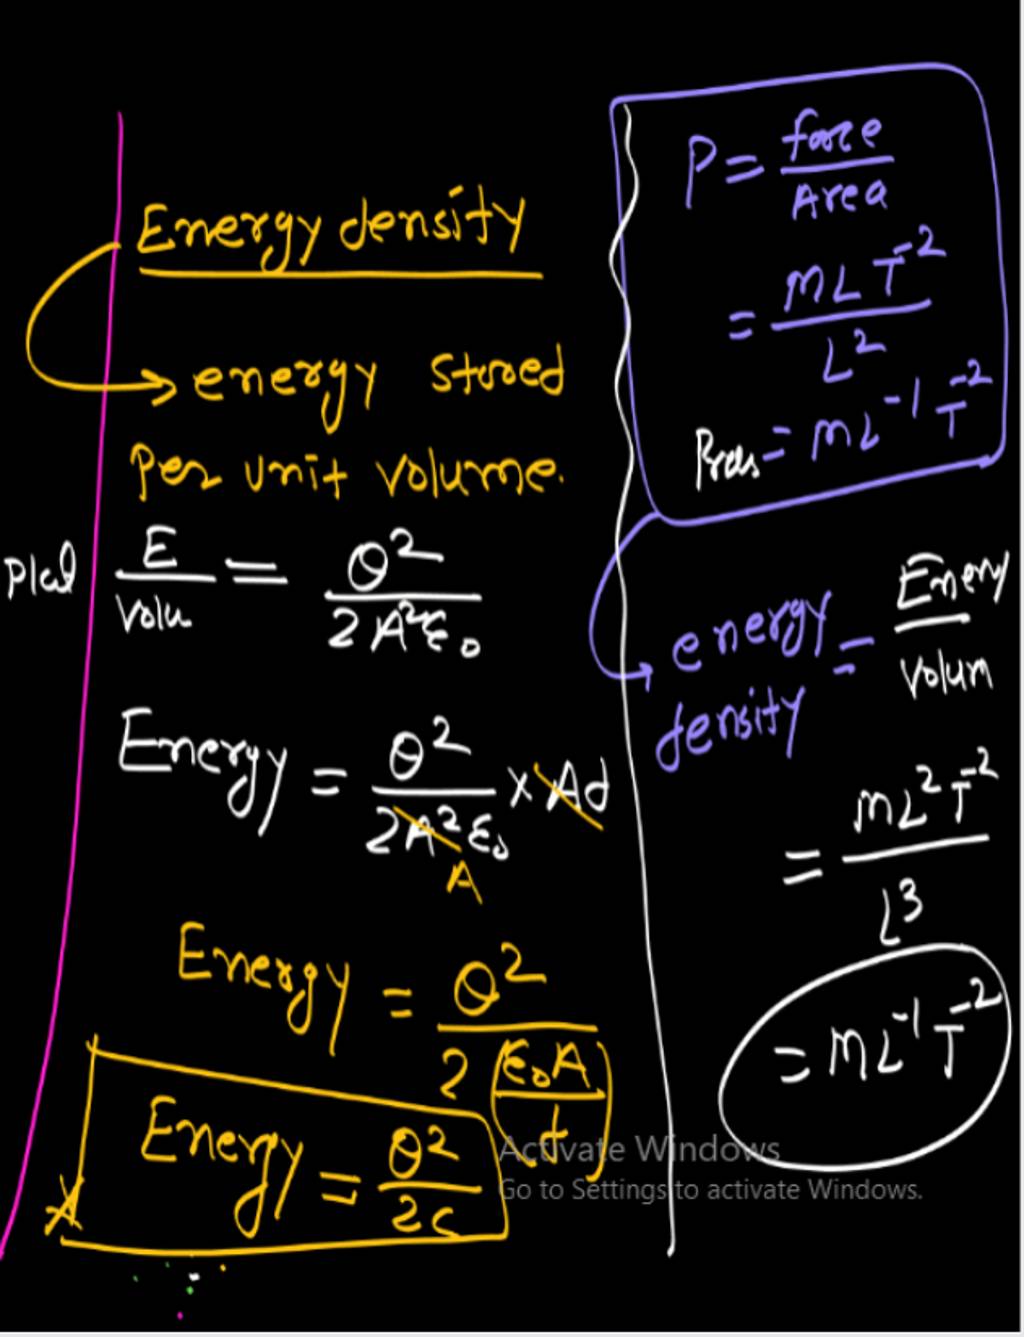 Energy density
→ energy stored
Per unit volume.
E/Volu = Q²/2A²ε₀
Energy = Q²/2A²ε₀ × Ad
A
Energy = Q²/2(ε₀A/d)
Energy = Q²/2C
P = force/Area
= MLT⁻²/L²
= ML⁻¹T⁻²
energy density = Enery/Volum
= ML²T⁻²/L³
= ML⁻¹T⁻²
Activate Windows
Go to Settings to activate Windows.